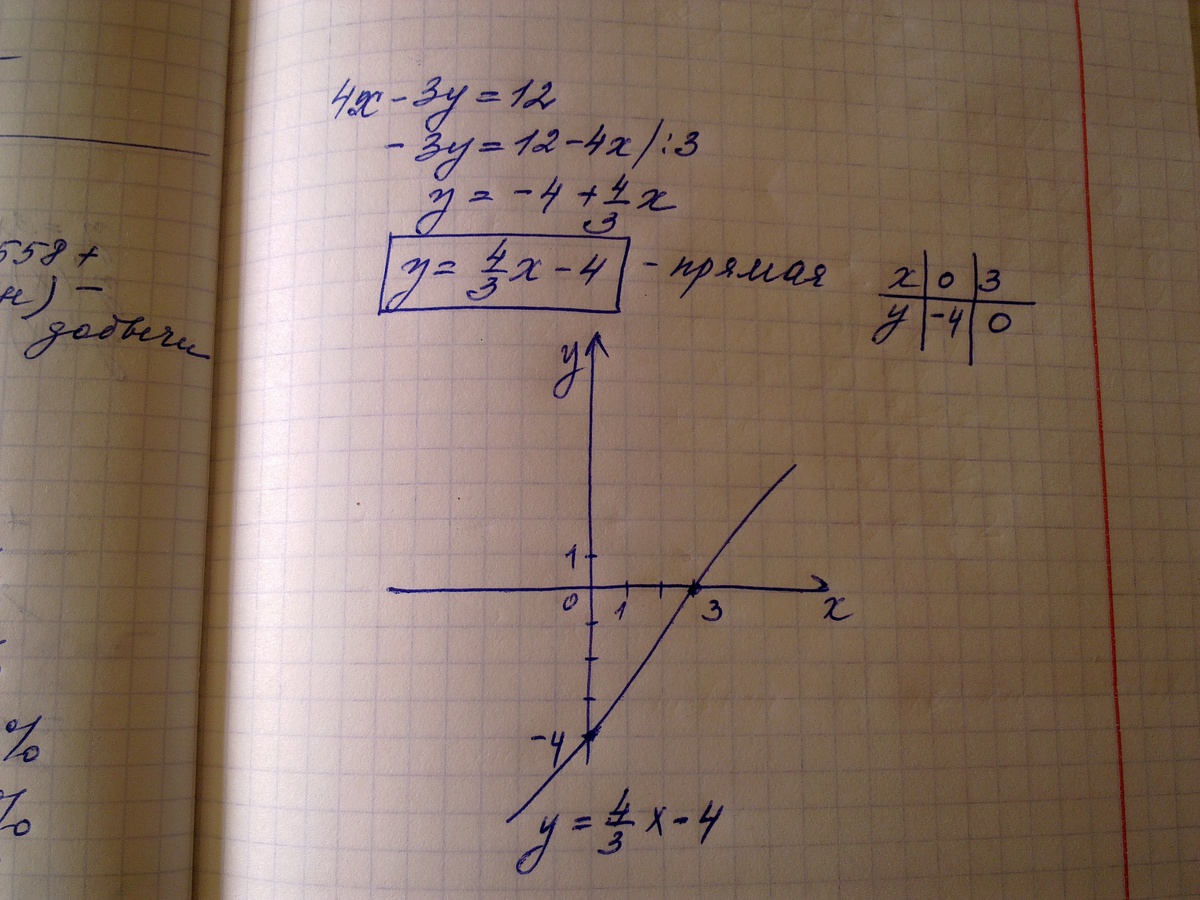 558 +
н) -
добычи
%
%
4x - 3y = 12
- 3y = 12 - 4x /:3
y = -4 + 4/3 x
y = 4/3 x - 4 - прямая
x 0 3
y -4 0
y
1
0 1 3 x
-4
y = 4/3 x - 4